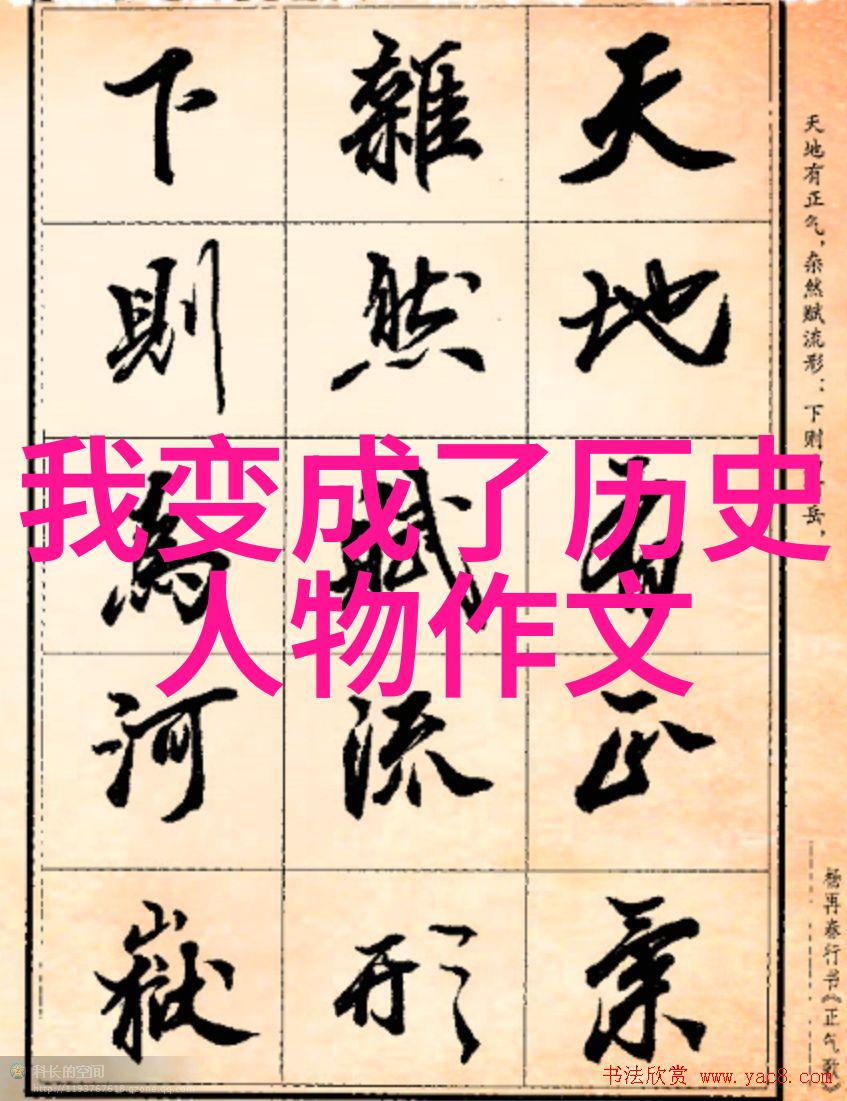 天地有正氣
雜然賦流形
下則為河嶽
天地有正气，杂然赋流形：下则
岳，
杨再春行书《正气歌》
我变成了历史
人物作文
科长的空间
http://1193767618.qzone.qq.com
书法欣赏 www.yac8.com